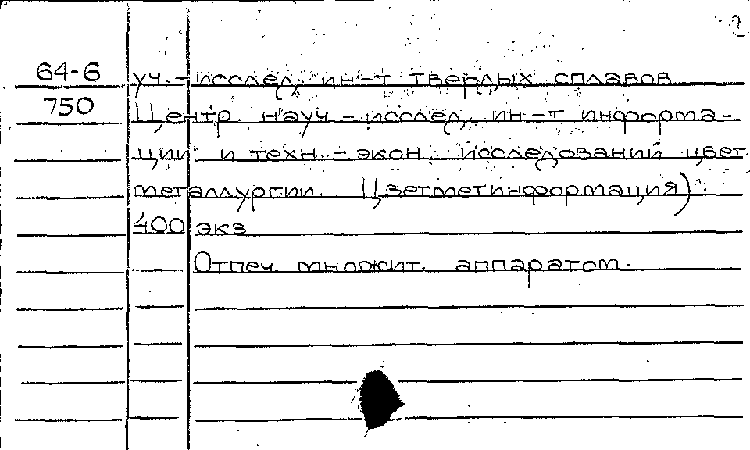 2
64-6 уч.-исслед. ин-т твердых сплавов
750 Центр. науч.-исслед. ин-т информа-
ции и техн.-экон. исследований цвет.
металлургии. Цветметинформация)
400 экз.
Отпеч. множит. аппаратом.